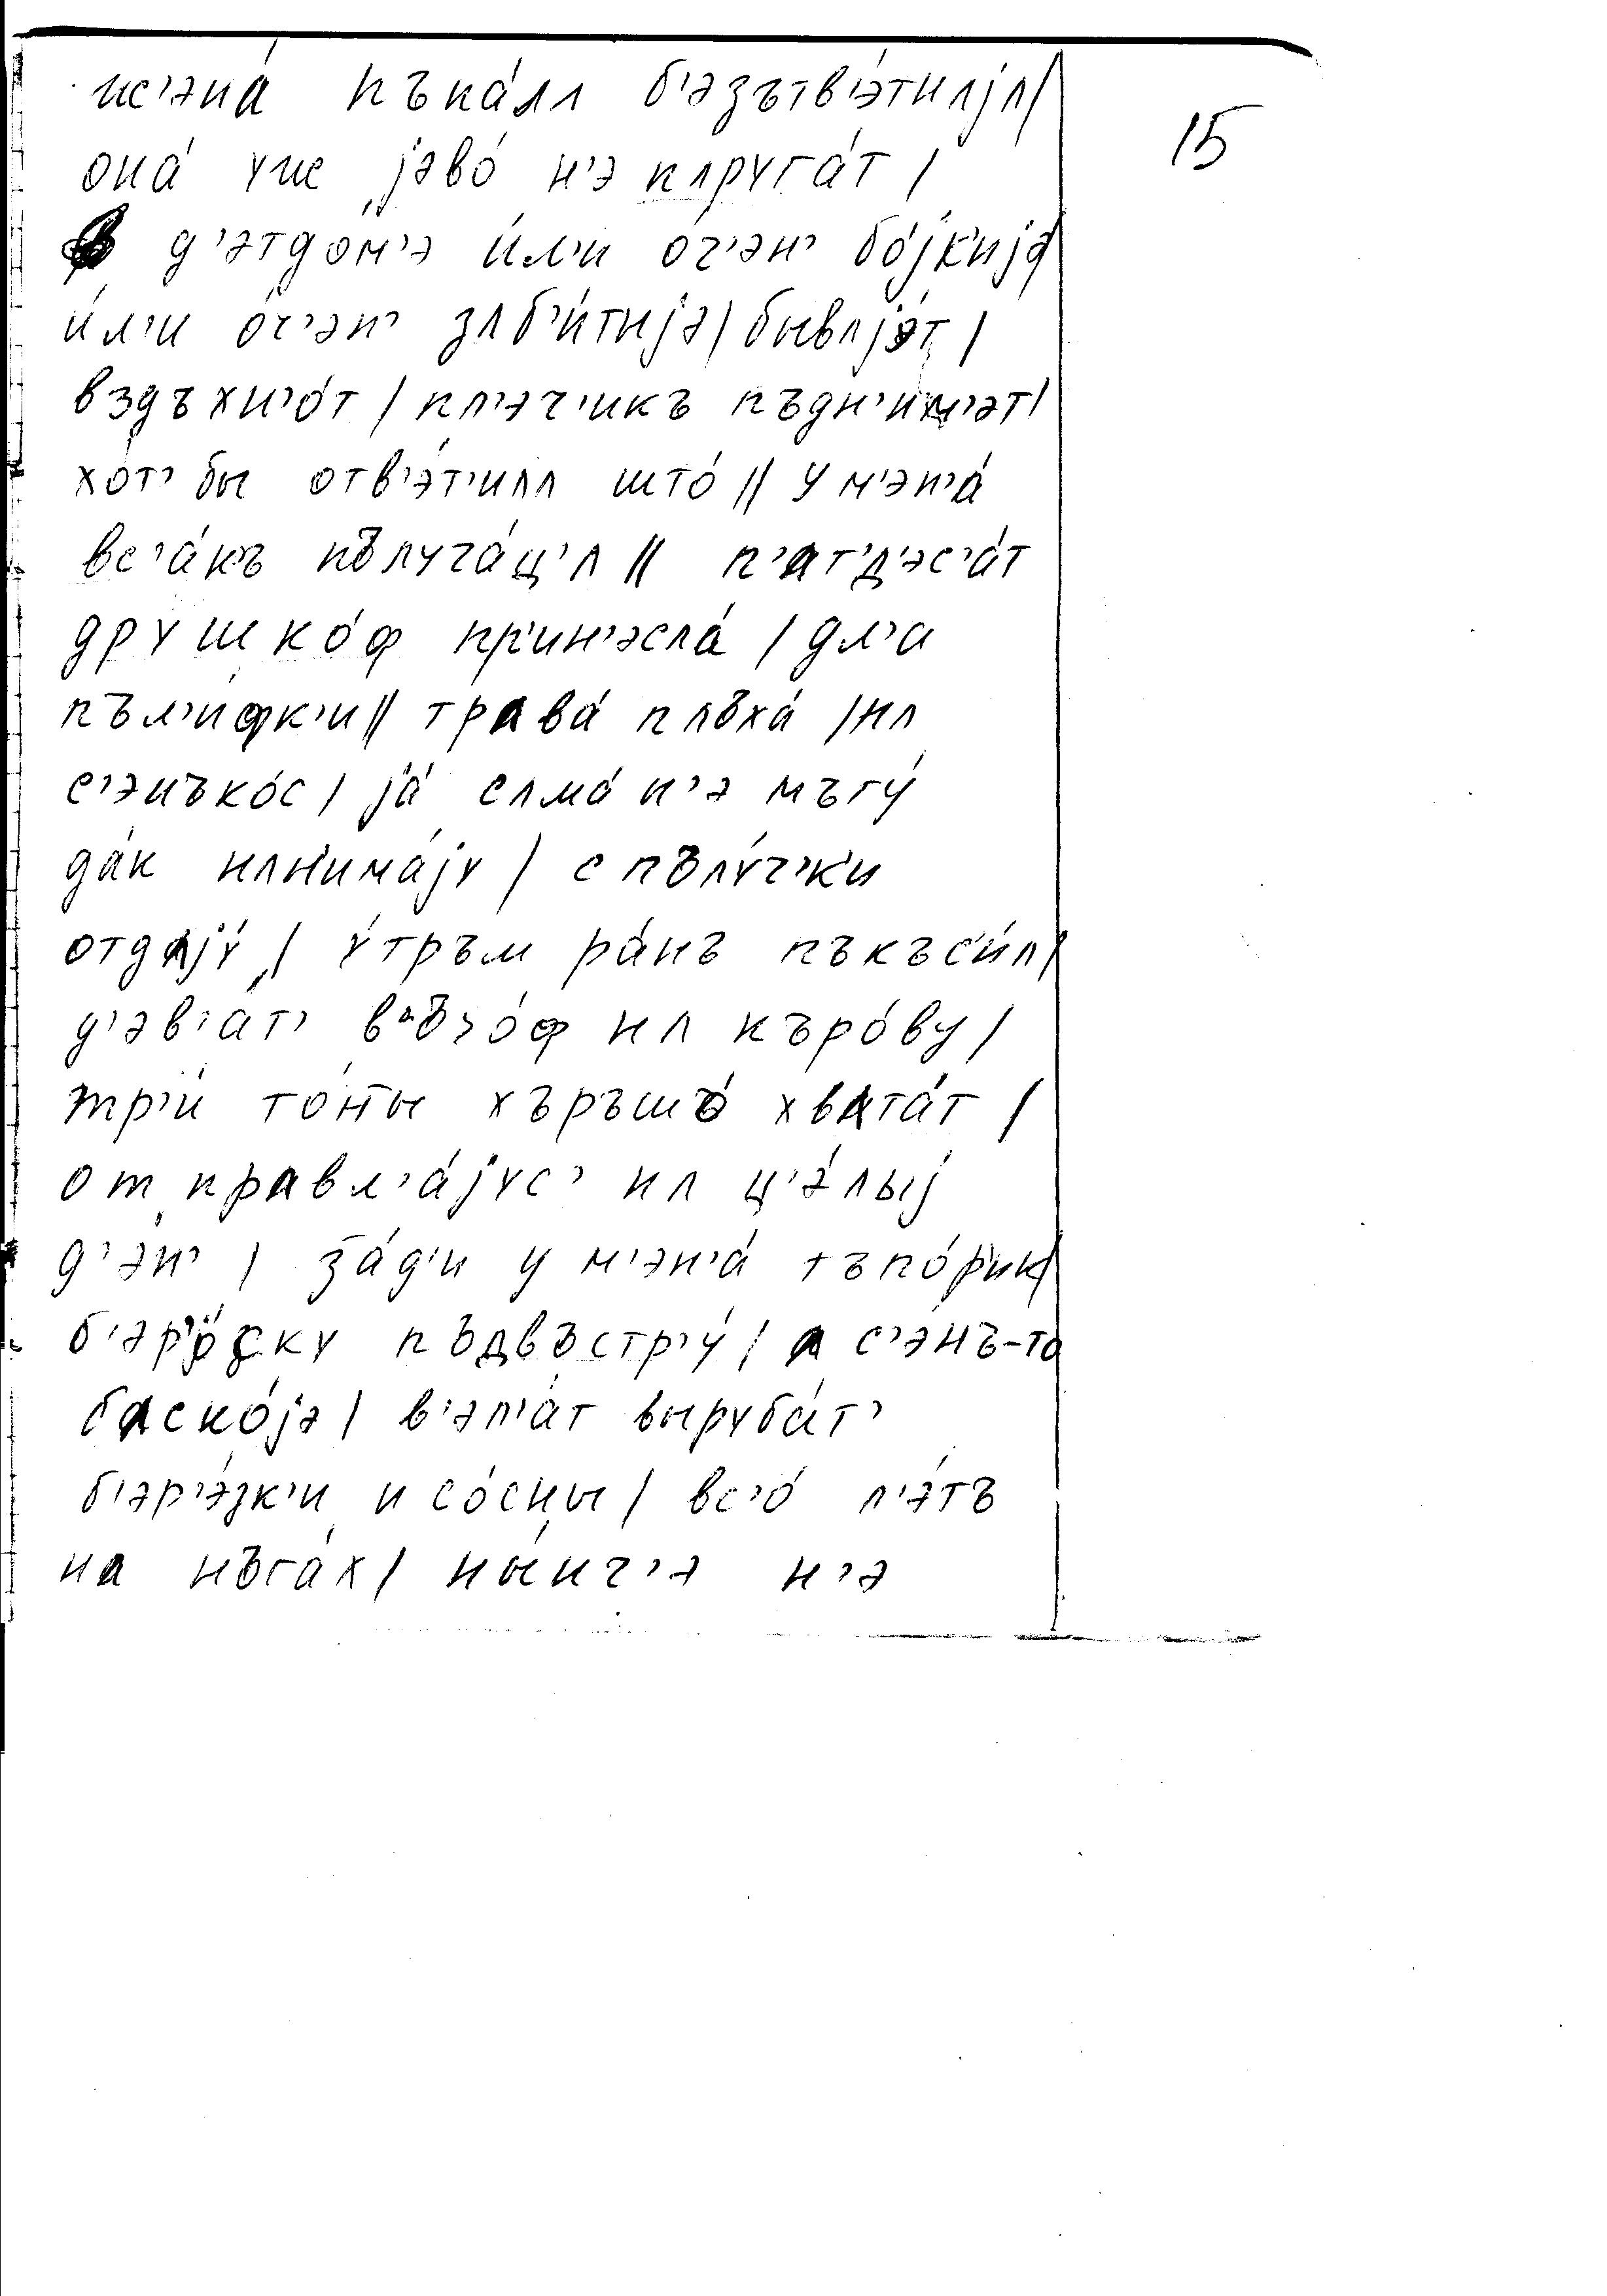 жэна́ пъка́лʌ б'эзътв'э́тнʌjʌ/
15
она́ уже jэво́ н'э пʌруга́т /
д'этдо́м'э и́л'и о́ч'эн' бо́jк'иjэ
и́л'и о́ч'эн' зʌб'и́тыjэ/ бывʌjэ́т /
вздъхн'о́т / пл'э́ч'икъ пъдн'и́м'эт/
хот' бы отв'э́т'илʌ што́ // у м'эн'а́
вс'а́къ пълуча́ц'ʌ // п'ат'д'эс'а́т
друшко́ф пр'ин'эсла́ / дл'а
пъл'и́фк'и // трава́ плъха́ / нʌ
с'энъко́с / jа́ сʌма́ н'э мъгу́
да́к нʌн'има́jу / с пълу́ч'к'и
отдʌjу́ / у́тръм ра́нъ пъкъс'и́л/
д'э́в'ат' възо́ф нʌ къро́ву /
тр'и́ то́н̄ы хъръшо́ хвата́т /
отправл'а́jус' нʌ ц'э́лыj
д'э́н' / за́д'и у м'эн'а́ тъпо́р'ик/
б'эр'о́ску пъдвъстр'у́ / а с'э́нъ-то
баско́jэ / в'эл'а́т выруба́т'
б'эр'э́зк'и и со́сны / вс'о́ л'э́тъ
на нъга́х / ны́нч'э н'э